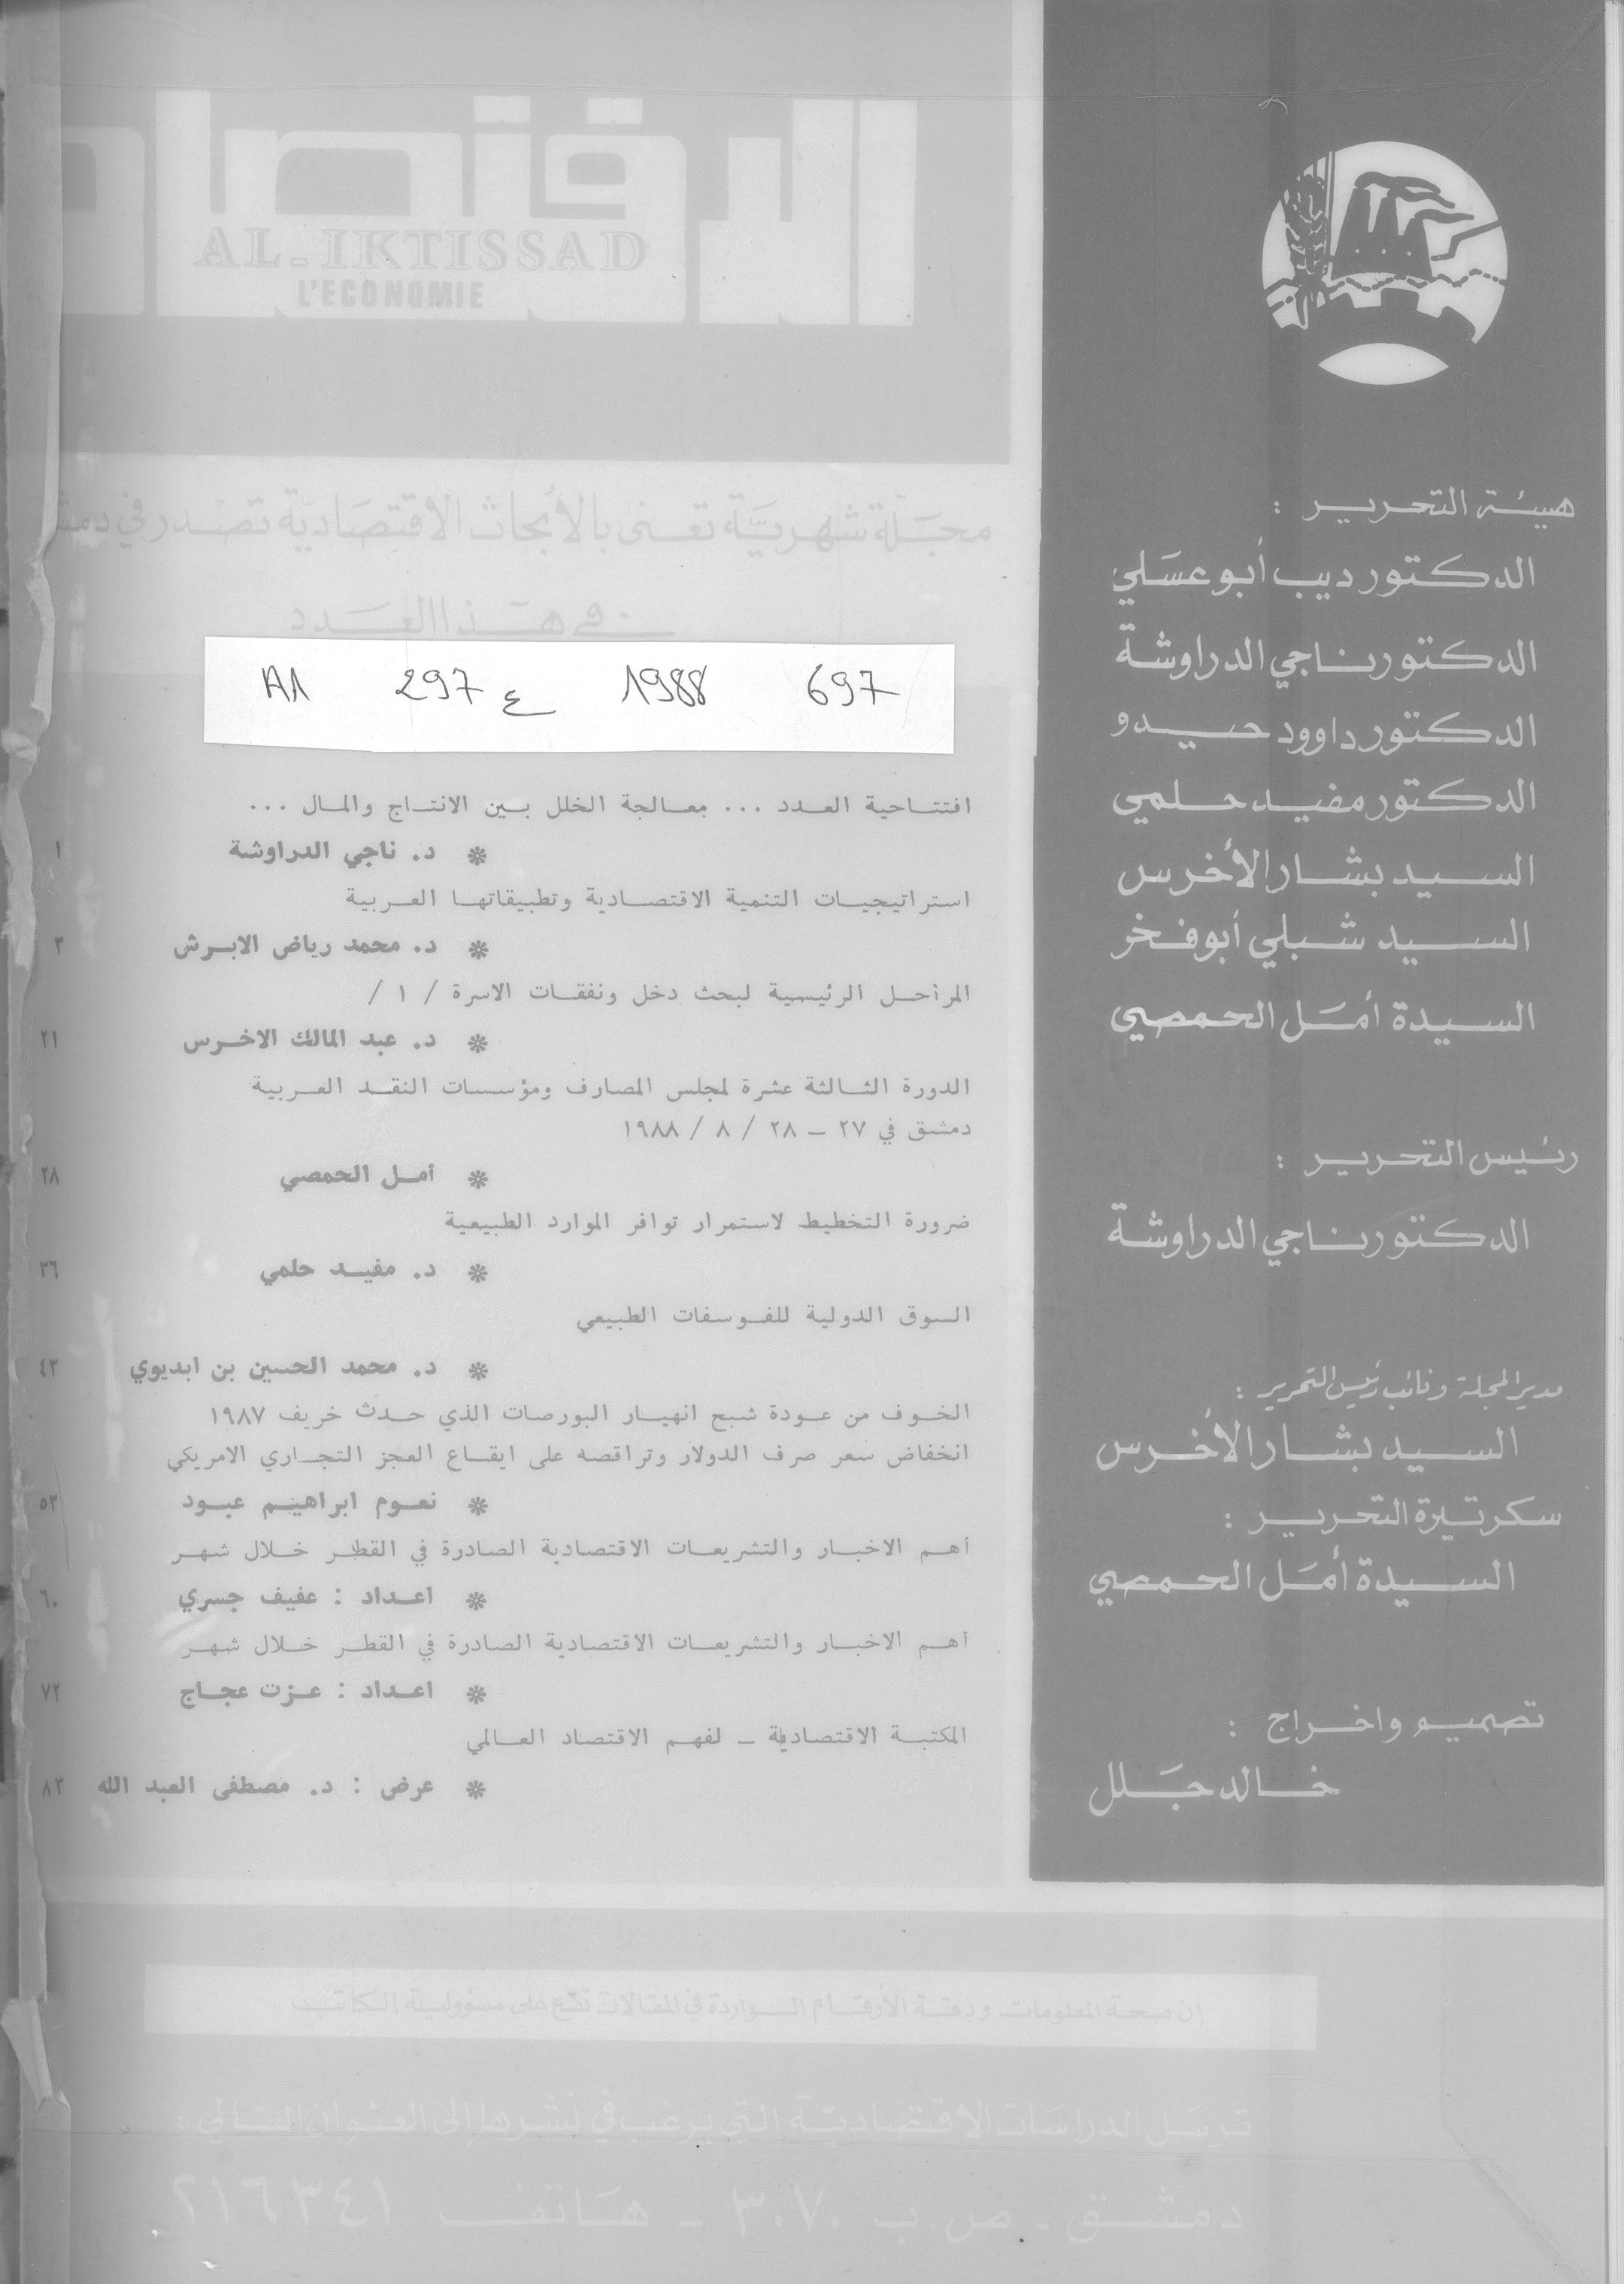 الاقتصاد
AL.IKTISSAD
L'ECONOMIE
مجلة شهرية تعنى بالأبحاث الاقتصادية تصدر في دمش
في هذا العدد
A1 297 ع 1988 697
افتتاحية العدد ... معالجة الخلل بين الانتاج والمال ...
* د. ناجي الدراوشة ١
استراتيجيات التنمية الاقتصادية وتطبيقاتها العربية
* د. محمد رياض الابرش ٣
المراحل الرئيسية لبحث دخل ونفقات الاسرة / ١ /
* د. عبد المالك الاخرس ٢١
الدورة الثالثة عشرة لمجلس المصارف ومؤسسات النقد العربية
دمشق في ٢٧ - ٢٨ / ٨ / ١٩٨٨
* أمل الحمصي ٢٨
ضرورة التخطيط لاستمرار توافر الموارد الطبيعية
* د. مفيد حلمي ٣٦
السوق الدولية للفوسفات الطبيعي
* د. محمد الحسين بن ابديوي ٤٣
الخوف من عودة شبح انهيار البورصات الذي حدث خريف ١٩٨٧
انخفاض سعر صرف الدولار وتراقصه على ايقاع العجز التجاري الامريكي
* نعوم ابراهيم عبود ٥٣
أهم الاخبار والتشريعات الاقتصادية الصادرة في القطر خلال شهر
* اعداد : عفيف جسري ٦٠
أهم الاخبار والتشريعات الاقتصادية الصادرة في القطر خلال شهر
* اعداد : عزت عجاج ٧٢
المكتبة الاقتصادية - لفهم الاقتصاد العالمي
* عرض : د. مصطفى العبد الله ٨٢
هيئة التحرير :
الدكتور ديب أبو عسلي
الدكتور ناجي الدراوشة
الدكتور داوود حيدو
الدكتور مفيد حلمي
السيد بشار الأخرس
السيد شبلي أبو فخر
السيدة أمل الحمصي
رئيس التحرير :
الدكتور ناجي الدراوشة
مدير المجلة ونائب رئيس التحرير :
السيد بشار الأخرس
سكرتيرة التحرير :
السيدة أمل الحمصي
تصميم واخراج :
خالد جلل
إن صحة المعلومات ودقة الأرقام الواردة في المقالات تقع على مسؤولية الكاتب
ترسل الدراسات الاقتصادية التي يرغب في نشرها إلى العنوان التالي :
دمشق - ص.ب ٣٠٧٠ - هاتف ٢١٦٣٤١